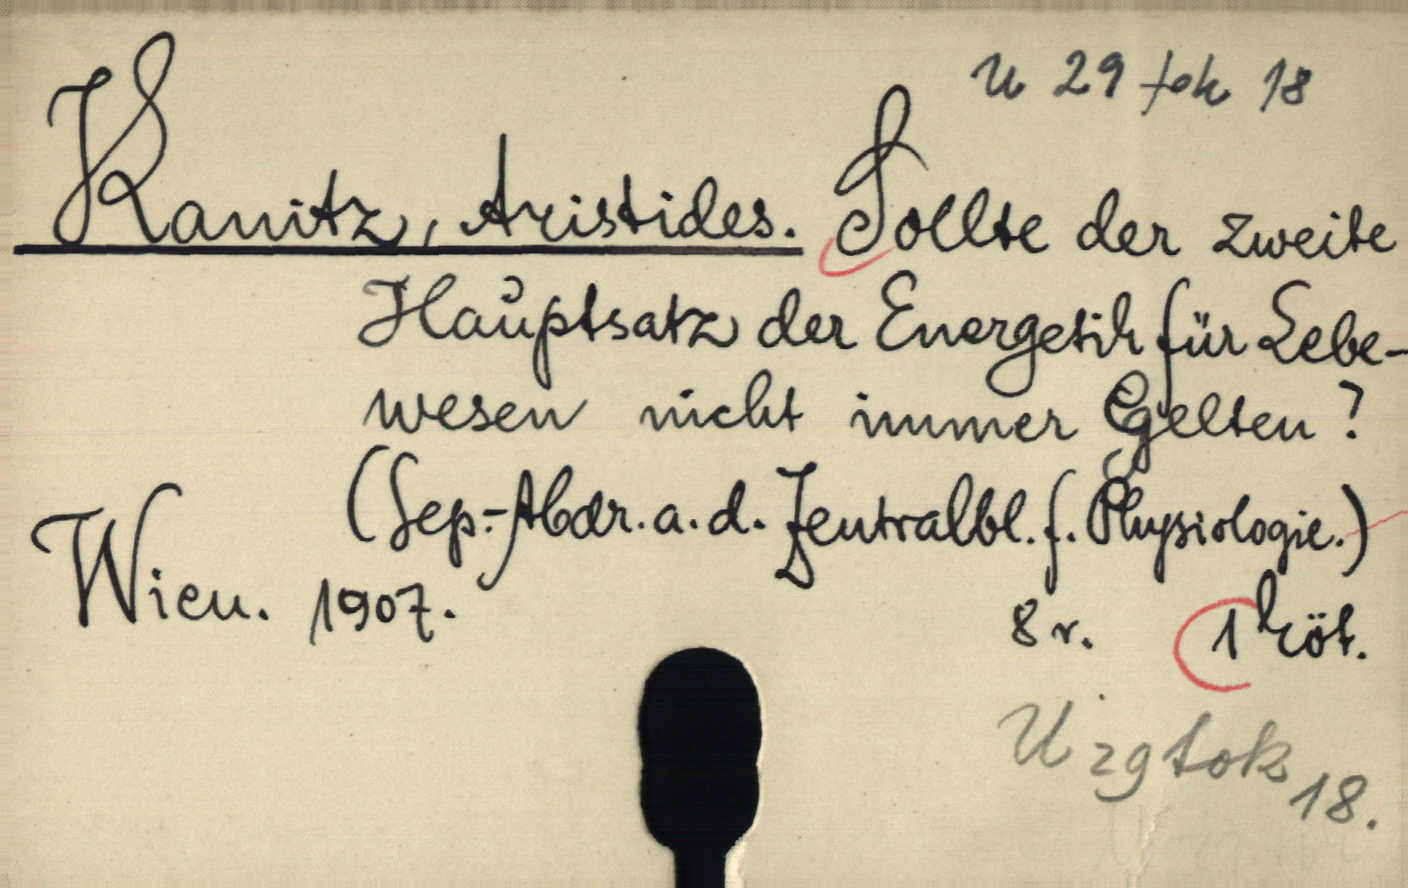 U 29 tok 18
Kanitz, Aristides. Sollte der zweite
Hauptsatz der Energetik für Lebe-
wesen nicht immer Gelten?
(Sep.-Abdr. a. d. Zentralbl. f. Physiologie.)
Wien. 1907. 8 r. 1 köt.
U 29 tok 18.